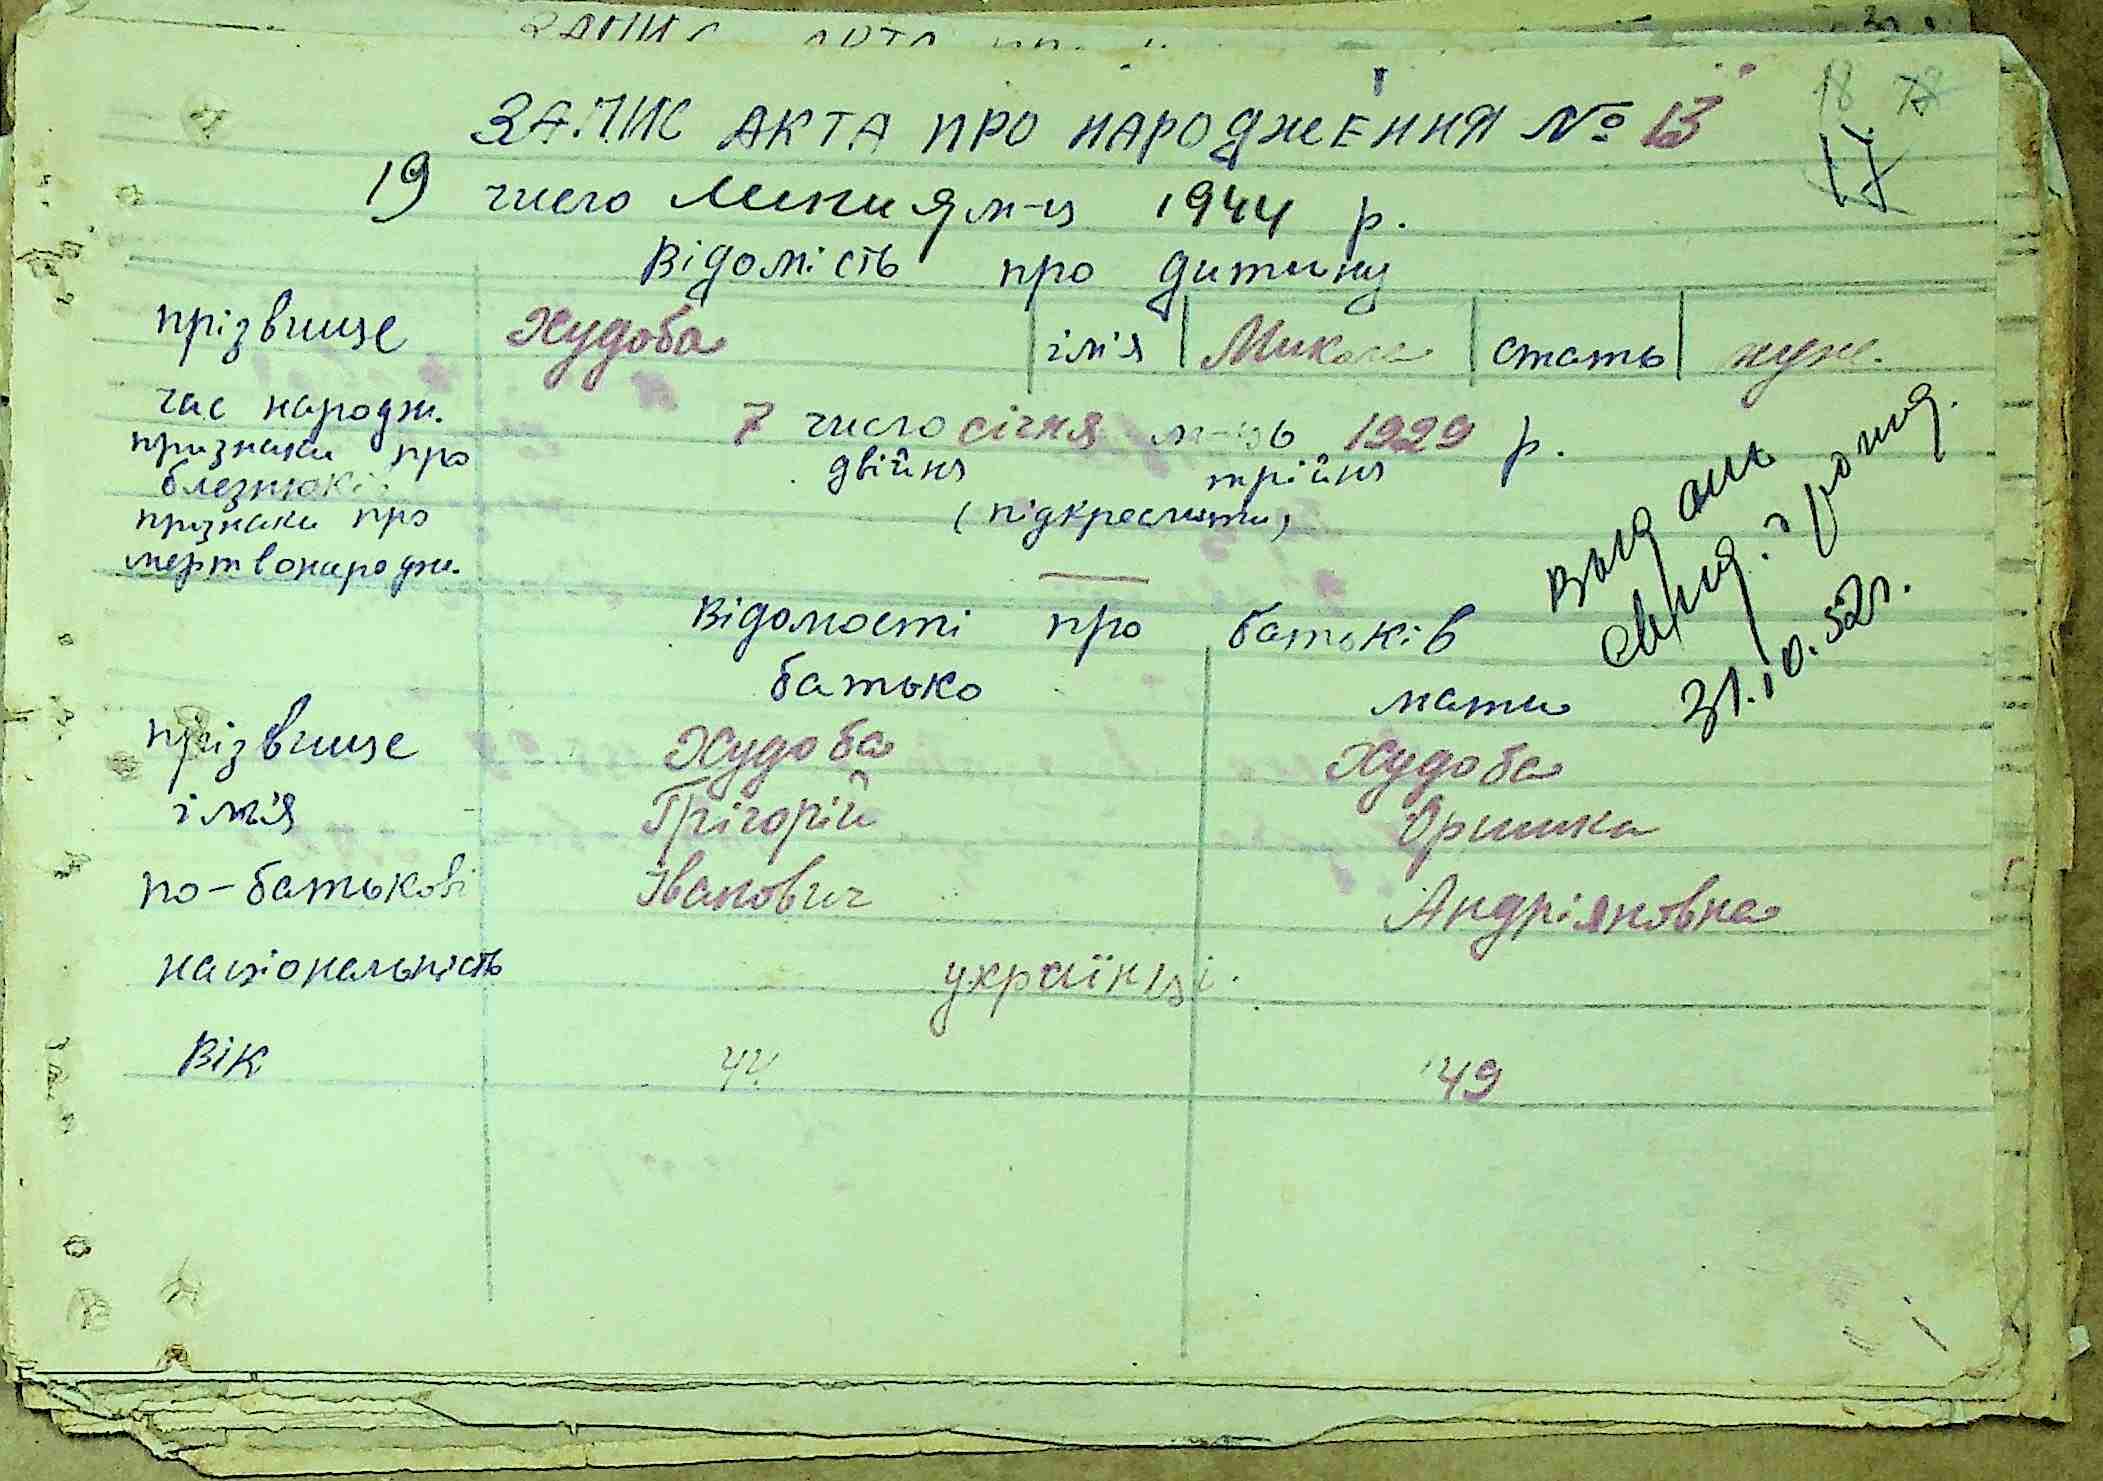 ЗАПИС АКТА ПРО НАРОДЖЕННЯ № 13
18 78
17
19 число липня м-ц 1944 р.
Відомість про дитину
прізвище Худоба ім'я Микола стать муж.
час народж. 7 число січня м-ць 1929 р.
признаки про близнюків двійня трійня
(підкреслити)
признаки про
мертвонародж. —
Выдано
свид. о рожд.
31.10.52г.
Відомості про батьків
батько мати
прізвище Худоба Худоба
ім'я Грігорій Оришка
по-батькові Іванович Андріяновна
національність українці.
Вік 44 49